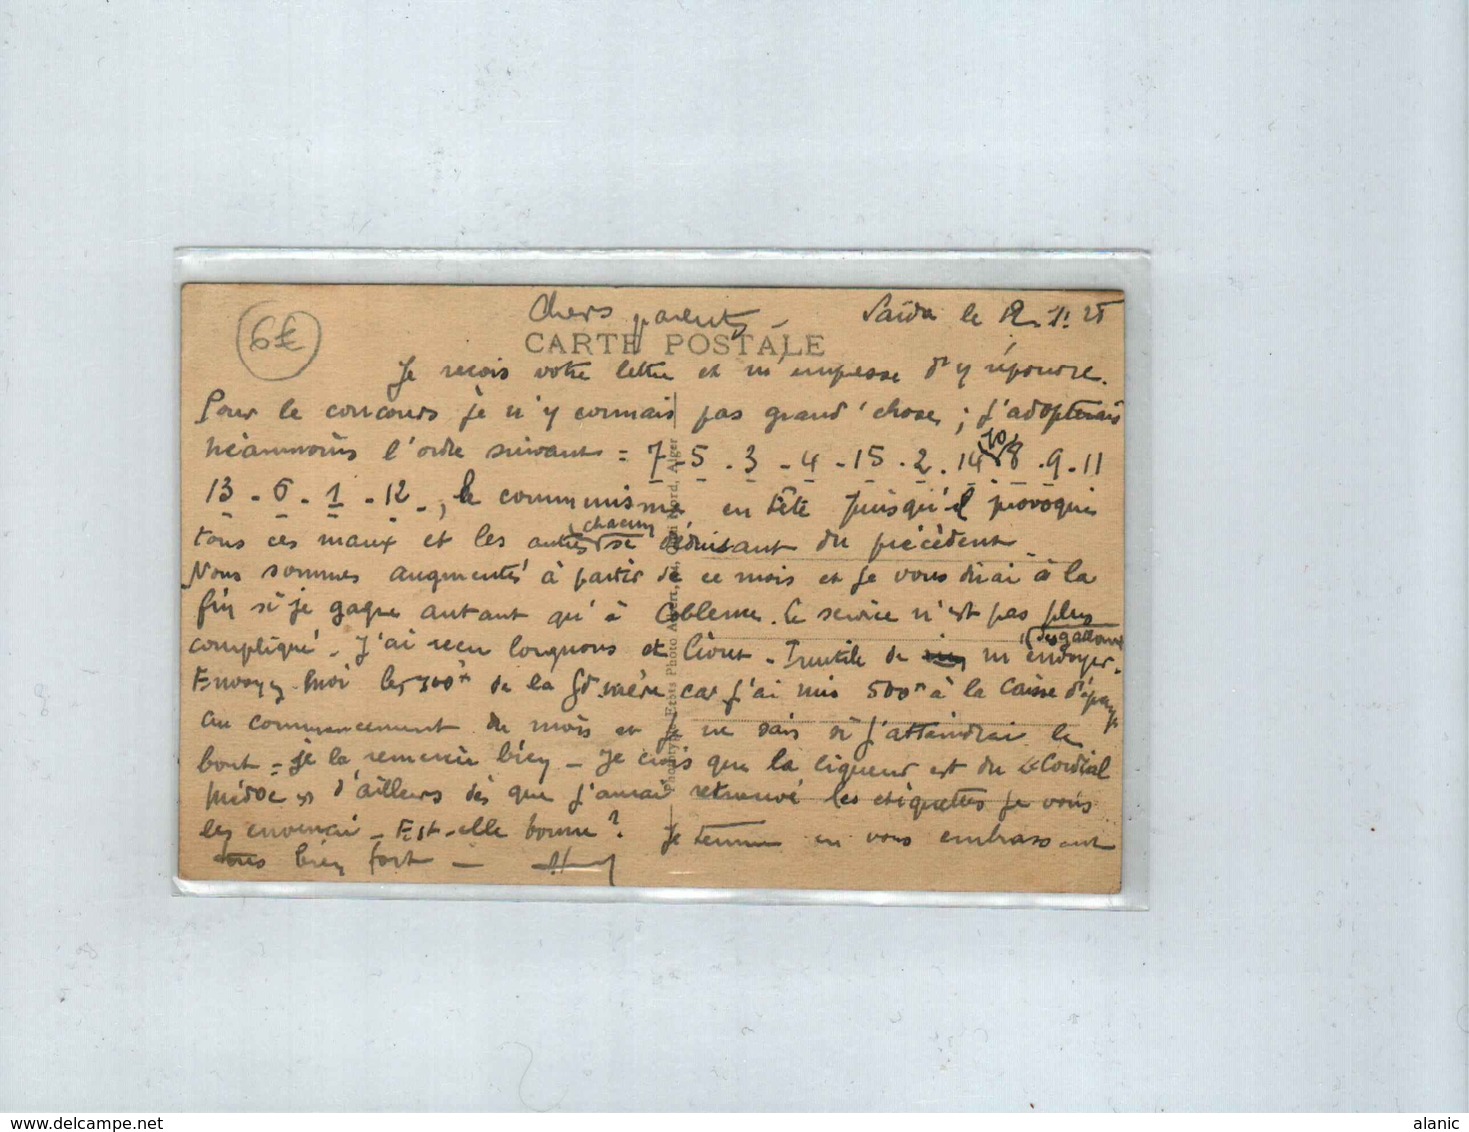 6€
Chers parents - Saïda le 12.1.25
CARTE POSTALE
Je reçois votre lettre et m'empresse d'y répondre.
Pour le concours je n'y connais pas grand'chose ; j'adopterais
néanmoins l'ordre suivant = 7 - 5 - 3 - 4 - 15 - 2 - 14 - 10 - 8 - 9 - 11
13 - 6 - 1 - 12 -, le communisme en tête puisqu'il provoque
tous ces maux et les autres chacun se déduisant du précédent -
Nous sommes augmentés à partir de ce mois et je vous dirai à la
fin si je gagne autant qu'à Coblence. Le service n'est pas plus
compliqué - J'ai reçu lorgnons et livret - Inutile de m'envoyer des galons -
Envoyez moi les 300f de la Gd mère car j'ai mis 500f à la Caisse d'épargne
au commencement du mois et je ne sais si j'attaindrai le
bout = je la remercie bien - Je crois que la liqueur est du Cordial
Médoc d'ailleurs dès que j'aurai retrouvé les étiquettes je vous
les enverrai - Est-elle bonne ? Je termine en vous embrassant
tous bien fort -
Phototypie Etabts Photo Albert, Alger
alanic
delcampe.net